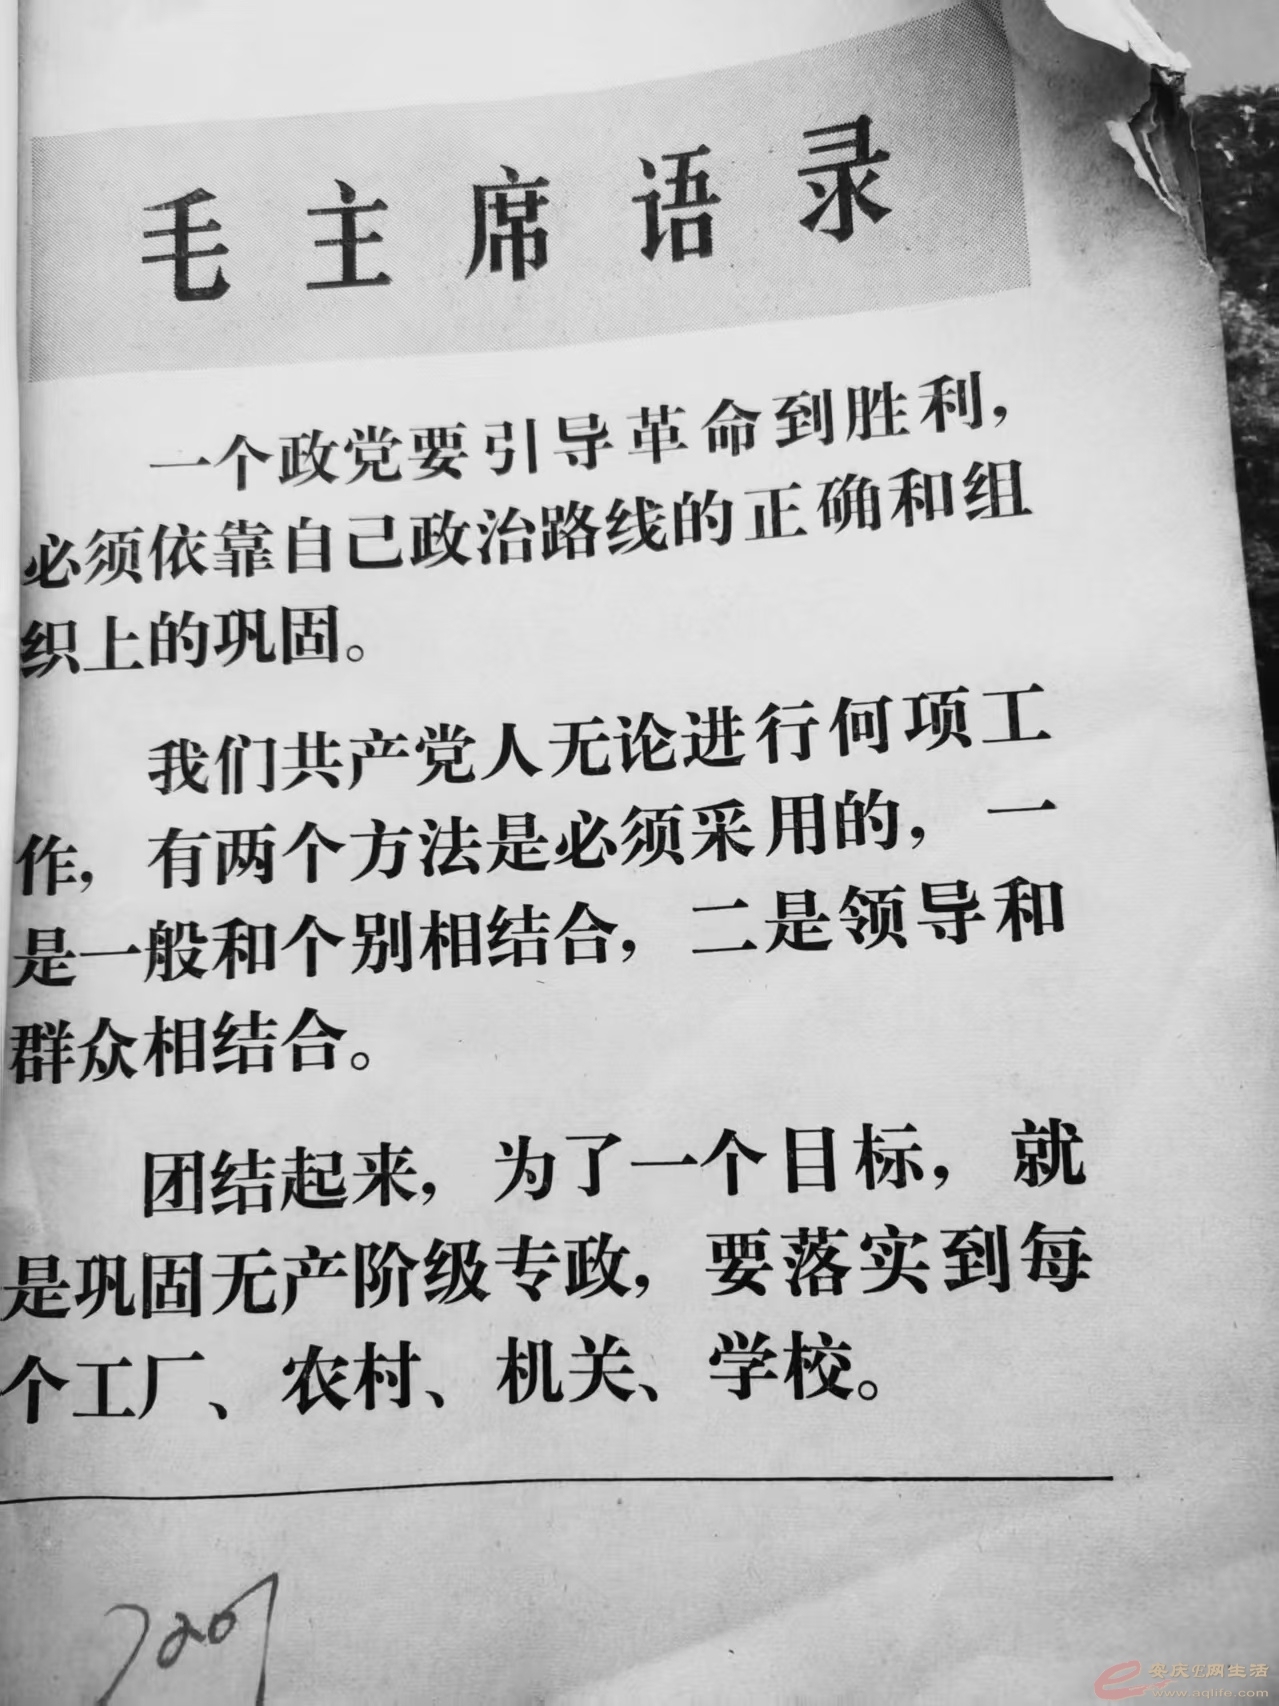 毛主席语录
一个政党要引导革命到胜利，
必须依靠自己政治路线的正确和组
织上的巩固。
我们共产党人无论进行何项工
作，有两个方法是必须采用的，一
是一般和个别相结合，二是领导和
群众相结合。
团结起来，为了一个目标，就
是巩固无产阶级专政，要落实到每
个工厂、农村、机关、学校。
安庆E网生活
www.aqlife.com